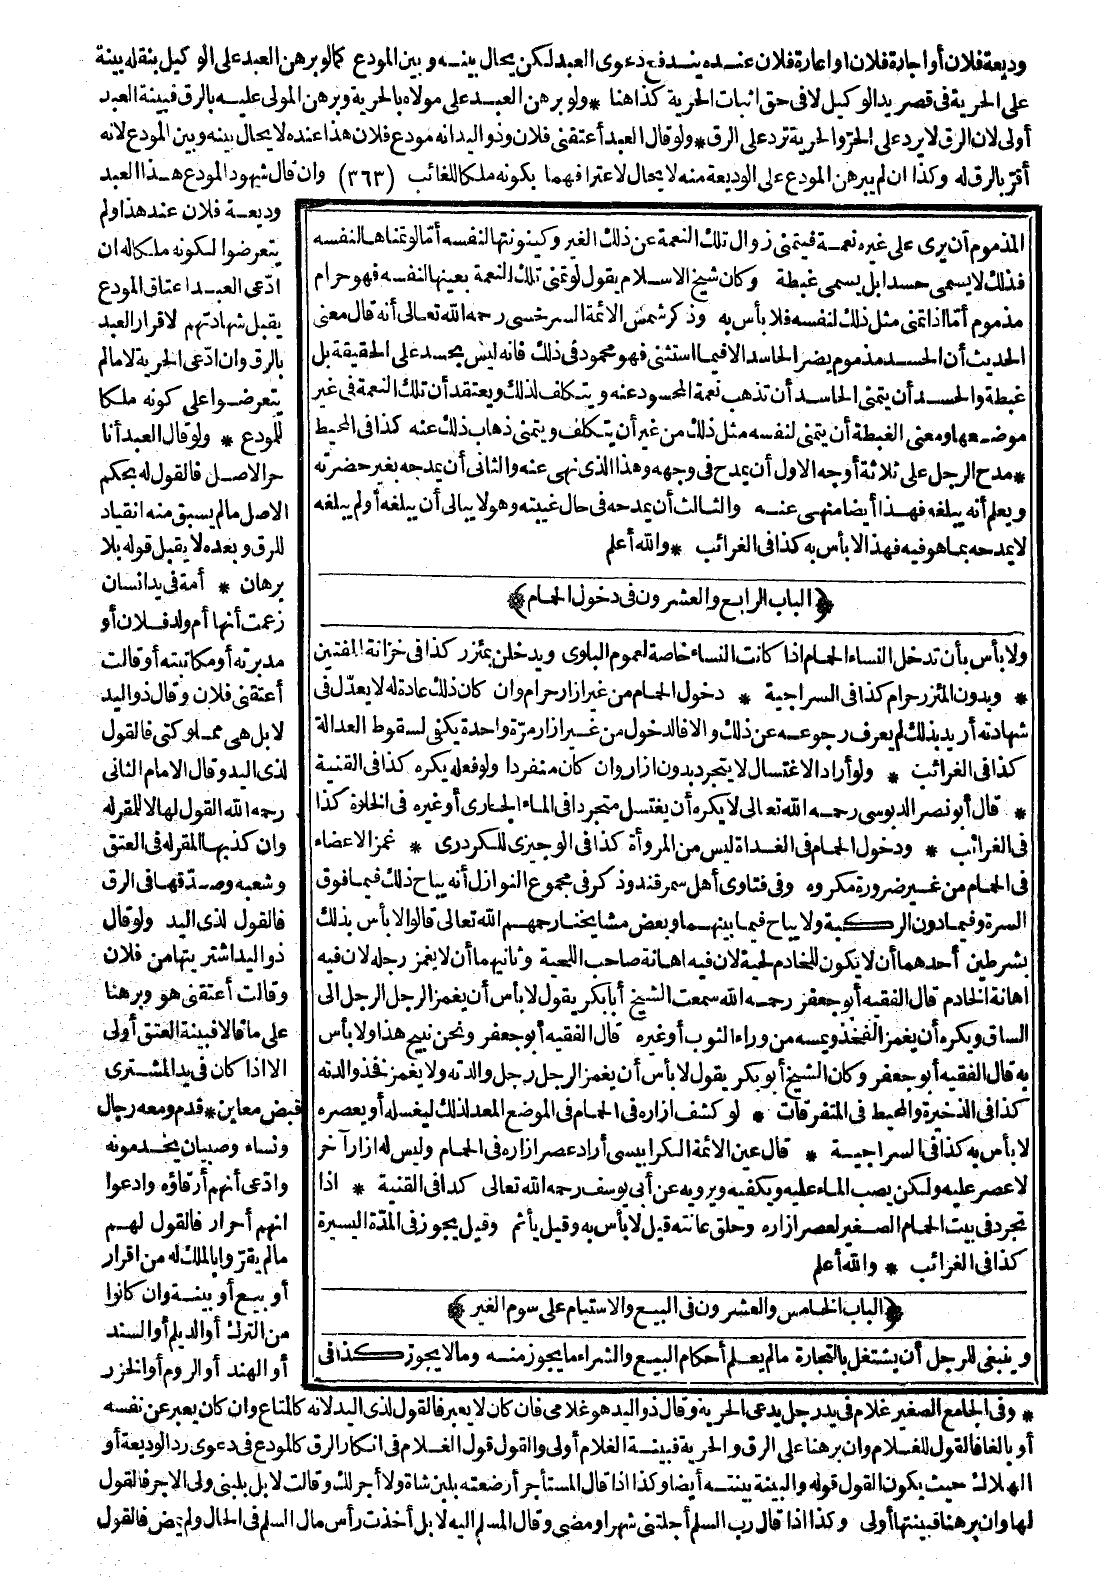 وديعة فلان أو اجارة فلان او اعارة فلان عنده يندفع دعوى العبد لكن يحال بينه وبين المودع كمالو برهن العبد على الوكيل بنقله بينة
على الحرية في قصر يد الوكيل لافى حق اثبات الحرية كذا هنا * ولو برهن العبد على مولاه بالحرية وبرهن المولى عليه بالرق فبينة العبد
أولى لان الرق لا يرد على الحرّ والحرية ترد على الرق * ولو قال العبد أعتقنى فلان وذو اليدانه مودع فلان هذا عنده لا يحال بينه وبين المودع لانه
أقرّ بالرق له وكذا ان لم يبرهن المودع على الوديعة منه لا يحال لاعترافهما بكونه ملكا للغائب (٣٦٣) وان قال شهود المودع هذا العبد
وديعة فلان عند هذا ولم
يتعرضوا لكونه ملكاله ان
ادّعى العبد اعتاق المودع
يقبل شهادتهم لاقرار العبد
بالرق وان ادّعى الحرية لا مالم
يتعرضوا على كونه ملكا
للمودع * ولو قال العبد أنا
حر الاصل فالقول له بحكم
الاصل مالم يسبق منه انقياد
للرق وبعده لا يقبل قوله بلا
برهان * أمة فى يد انسان
زعمت أنها أم ولد فلان أو
مدبرته أو مكاتبته أو قالت
أعتقنى فلان وقال ذو اليد
لابل هى مملوكتى فالقول
لذى اليد وقال الامام الثانى
رحمه الله القول لها لا للمقرله
وان كذبها المقرله فى العتق
وشعبه وصدّقها فى الرق
فالقول لذى اليد ولو قال
ذو اليد اشتريتها من فلان
وقالت أعتقنى هو وبرهنا
على ما قالا فبينة العتق أولى
الا اذا كان فى يد المشترى
قبض معاين * قدم ومعه رجال
ونساء وصبيان يخدمونه
وادّعى أنهم أرقاؤه وادعوا
انهم أحرار فالقول لهم
مالم يقرّوا بالملك له من اقرار
أو بيع أو بينة وان كانوا
من الترك أو الديلم أو السند
أو الهند أو الروم أو الخزر
المذموم أن يرى على غيره نعمة فيتمنى زوال تلك النعمة عن ذلك الغير وكينونتها لنفسه أمّا لو تمناها لنفسه
فذلك لا يسمى حسدا بل يسمى غبطة وكان شيخ الاسلام يقول لو تمنى تلك النعمة بعينها لنفسه فهو حرام
مذموم أمّا اذا تمنى مثل ذلك لنفسه فلا بأس به وذكر شمس الائمة السرخسى رحمه الله تعالى أنه قال معنى
الحديث أن الحسد مذموم يضر الحاسد الا فيما استثنى فهو محمود فى ذلك فانه ليس بحسد على الحقيقة بل
غبطة والحسد أن يتمنى الحاسد أن تذهب نعمة المحسود عنه ويتكلف لذلك ويعتقد أن تلك النعمة فى غير
موضعها ومعنى الغبطة أن يتمنى لنفسه مثل ذلك من غير أن يتكلف ويتمنى ذهاب ذلك عنه كذا فى المحيط
* مدح الرجل على ثلاثة أوجه الاول أن يمدح فى وجهه وهذا الذى نهى عنه والثانى أن يمدحه بغير حضرته
ويعلم أنه يبلغه فهذا أيضا منهى عنه والثالث أن يمدحه فى حال غيبته وهو لا يبالى أن يبلغه أو لم يبلغه
لا يمدحه بما هو فيه فهذا لا بأس به كذا فى الغرائب * والله أعلم
﴿الباب الرابع والعشرون فى دخول الحمام﴾
ولا بأس بأن تدخل النساء الحمام اذا كانت النساء خاصة لعموم البلوى ويدخلن بمئزر كذا فى خزانة المفتين
* وبدون المئزر حرام كذا فى السراجية * دخول الحمام من غير ازار حرام وان كان ذلك عادة له لا يعدّل فى
شهادته أريد بذلك لم يعرف رجوعه عن ذلك والا فالدخول من غير ازار مرّة واحدة يكفى لسقوط العدالة
كذا فى الغرائب * ولو أراد الاغتسال لا يتجرد بدون ازار وان كان منفردا ولو فعله يكره كذا فى القنية
* قال أبو نصر الدبوسى رحمه الله تعالى لا يكره أن يغتسل متجردا فى الماء الجارى أو غيره فى الخلوة كذا
فى الغرائب * ودخول الحمام فى الغداة ليس من المروأة كذا فى الوجيز للكردرى * غمز الاعضاء
فى الحمام من غير ضرورة مكروه وفى فتاوى أهل سمرقند وذكر فى مجموع النوازل أنه يباح ذلك فيما فوق
السرة وفيما دون الركبة ولا يباح فيما بينهما وبعض مشايخنا رحمهم الله تعالى قالوا لا بأس بذلك
بشرطين أحدهما أن لا يكون للخادم لحية لان فيه اهانة صاحب اللحية وثانيهما أن لا يغمز رجله لان فيه
اهانة الخادم قال الفقيه أبو جعفر رحمه الله سمعت الشيخ أبا بكر يقول لا بأس أن يغمز الرجل الرجل الى
الساق ويكره أن يغمز الفخذ ويمسه من وراء الثوب أو غيره قال الفقيه أبو جعفر ونحن نبيح هذا ولا بأس
به قال الفقيه أبو جعفر وكان الشيخ أبو بكر يقول لا بأس أن يغمز الرجل رجل والدته ولا يغمز فخذ والدته
كذا فى الذخيرة والمحيط فى المتفرقات * لو كشف ازاره فى الحمام فى الموضع المعد لذلك ليغسله أو يعصره
لا بأس به كذا فى السراجية * قال عين الائمة الكرابيسى أراد عصر ازاره فى الحمام وليس له ازار آخر
لا عصر عليه ولكن يصب الماء عليه ويكفيه ويرويه عن أبى يوسف رحمه الله تعالى كذا فى القنية * اذا
تجرد فى بيت الحمام الصغير لعصر ازاره وحلق عانته قيل لا بأس به وقيل يأثم وقيل يجوز فى المدّة اليسيرة
كذا فى الغرائب * والله أعلم
﴿الباب الخامس والعشرون فى البيع والاستيام على سوم الغير﴾
وينبغى للرجل أن يشتغل بالتجارة مالم يعلم أحكام البيع والشراء ما يجوز منه وما لا يجوز كذا فى
* وفى الجامع الصغير غلام فى يد رجل يدعى الحرية وقال ذو اليد هو غلامى فان كان لا يعبر فالقول لذى اليد لانه كالمتاع وان كان يعبر عن نفسه
أو بالغا فالقول للغلام وان برهنا على الرق والحرية فبينة الغلام أولى والقول قول الغلام فى انكار الرق كالمودع فى دعوى رد الوديعة أو
الهلاك حيث يكون القول قوله والبينة بينته أيضا وكذا اذا قال المستأجر أرضعته بلبن شاة ولا أجر لك وقالت لا بل بلبنى ولى الاجر فالقول
لها وان برهنا فبينتها أولى وكذا اذا قال رب السلم أجلتنى شهرا ومضى وقال المسلم اليه لا بل أخذت رأس مال السلم فى الحال ولم يمض فالقول